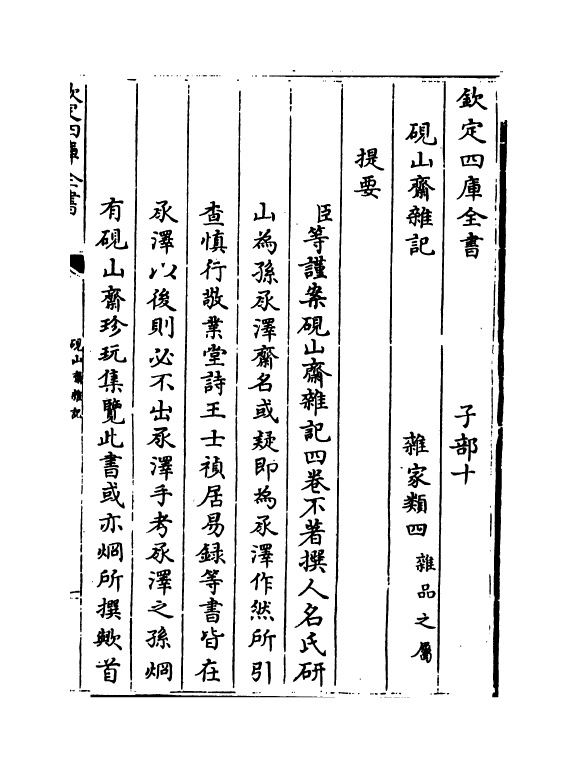 欽定四庫全書　子部十
硯山齋雜記　雜家類四雜品之屬
提要
臣等謹案硯山齋雜記四卷不著撰人名氏研
山為孫承澤齋名或疑即為承澤作然所引
查慎行敬業堂詩王士禎居易録等書皆在
承澤以後則必不出承澤手考承澤之孫烱
有硯山齋珍玩集覽此書或亦烱所撰歟首
欽定四庫全書
硯山齋雜記
一